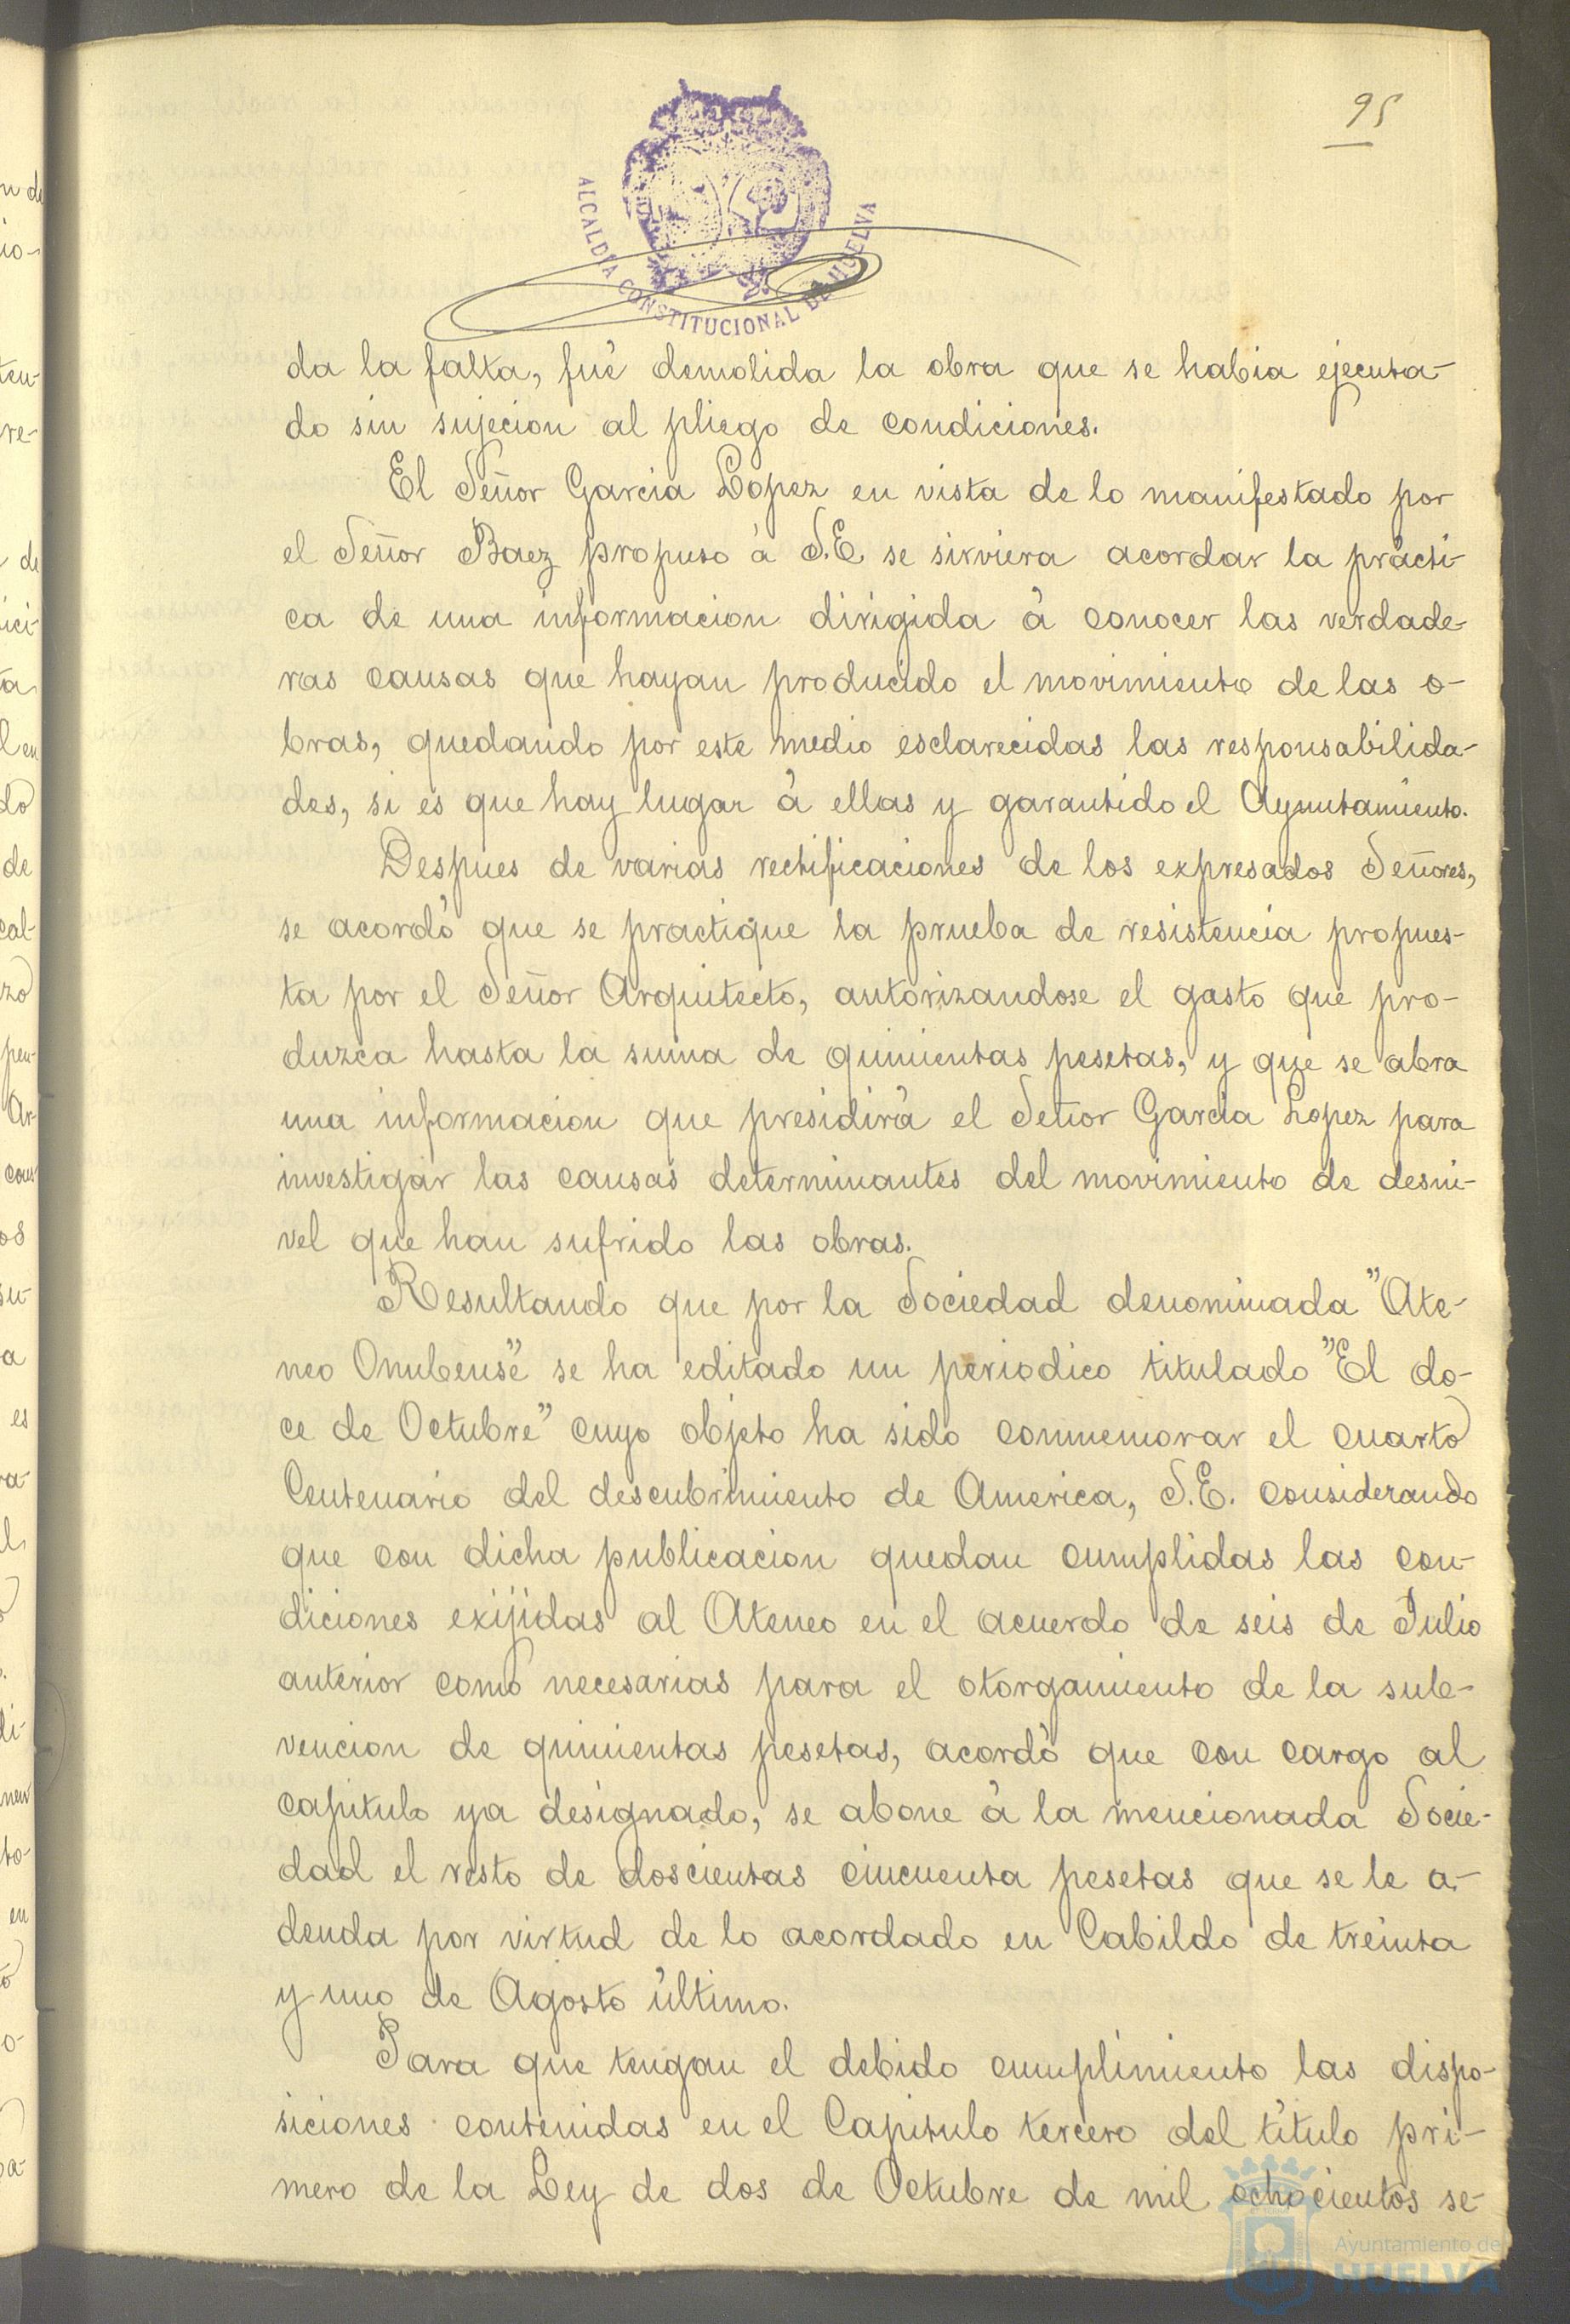 95
ALCALDIA CONSTITUCIONAL DE HUELVA
da la falta, fué demolida la obra que se habia ejecuta-
do sin sujecion al pliego de condiciones.
El Señor Garcia Lopez en vista de lo manifestado por
el Señor Baez propuso á S.E. se sirviera acordar la prácti-
ca de una informacion dirigida á conocer las verdade-
ras causas que hayan producido el movimiento de las o-
bras, quedando por este medio esclarecidas las responsabilida-
des, si es que hay lugar á ellas y garantido el Ayuntamiento.
Despues de varias rectificaciones de los expresados Señores,
se acordó que se practique la prueba de resistencia propues-
ta por el Señor Arquitecto, autorizandose el gasto que pro-
duzca hasta la suma de quinientas pesetas, y que se abra
una informacion que presidirá el Señor Garcia Lopez para
investigar las causas determinantes del movimiento de desni-
vel que han sufrido las obras.
Resultando que por la Sociedad denominada "Ate-
neo Onubense" se ha editado un periodico titulado "El do-
ce de Octubre" cuyo objeto ha sido conmemorar el cuarto
Centenario del descubrimiento de America, S.E. considerando
que con dicha publicacion quedan cumplidas las con-
diciones exijidas al Ateneo en el acuerdo de seis de Julio
anterior como necesarias para el otorgamiento de la sub-
vencion de quinientas pesetas, acordó que con cargo al
capitulo ya designado, se abone á la mencionada Socie-
dad el resto de doscientas cincuenta pesetas que se le a-
deuda por virtud de lo acordado en Cabildo de treinta
y uno de Agosto último.
Para que tengan el debido cumplimiento las dispo-
siciones contenidas en el Capitulo tercero del titulo pri-
mero de la Ley de dos de Octubre de mil ochocientos se-
Ayuntamiento de
HUELVA